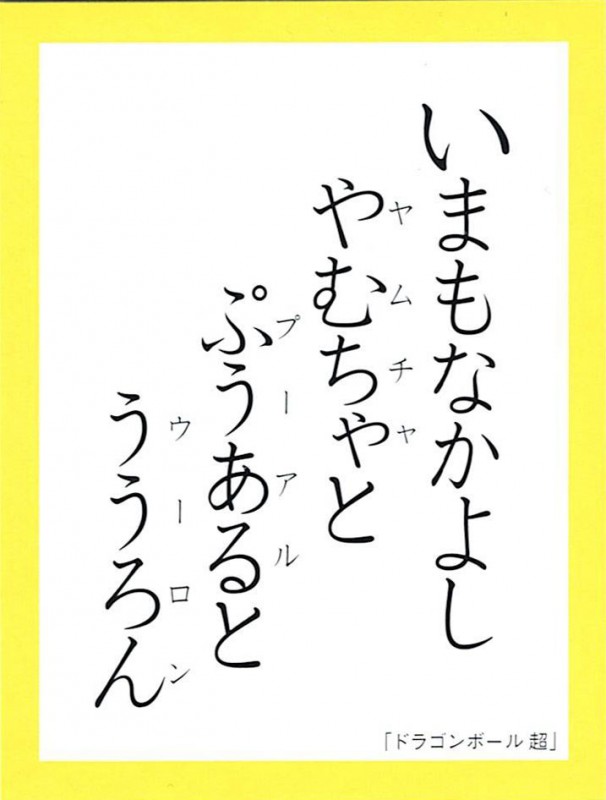 いまもなかよし
やむちゃと
ヤムチャ
ぷうあると
プーアル
ううろん
ウーロン
「ドラゴンボール 超」